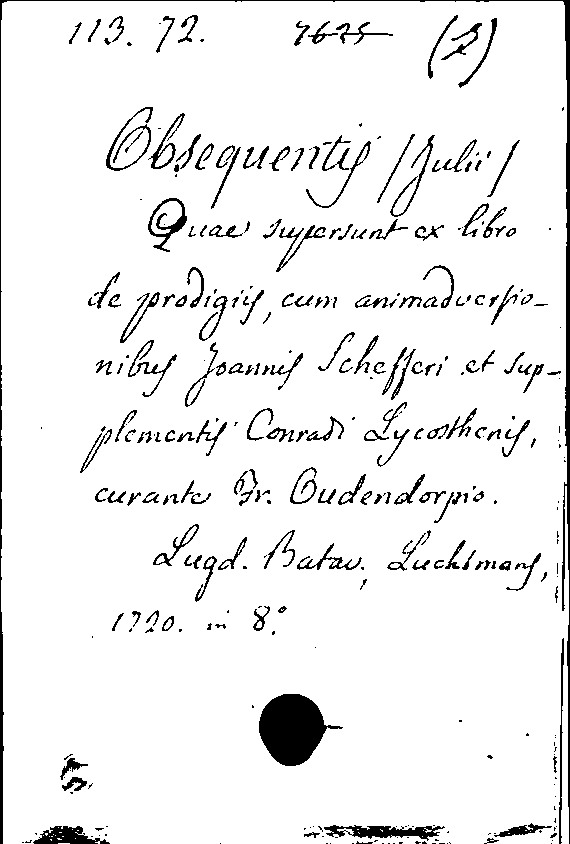 113. 72. 7625 (2)
Obsequentis /Julii/
Quae supersunt ex libro
de prodigiis, cum animadversio-
nibus Joannis Schefferi et sup-
plementis Conradi Lycosthenis,
curante Fr. Oudendorpio.
Lugd. Batav., Luchtmans,
1720. in 8.°